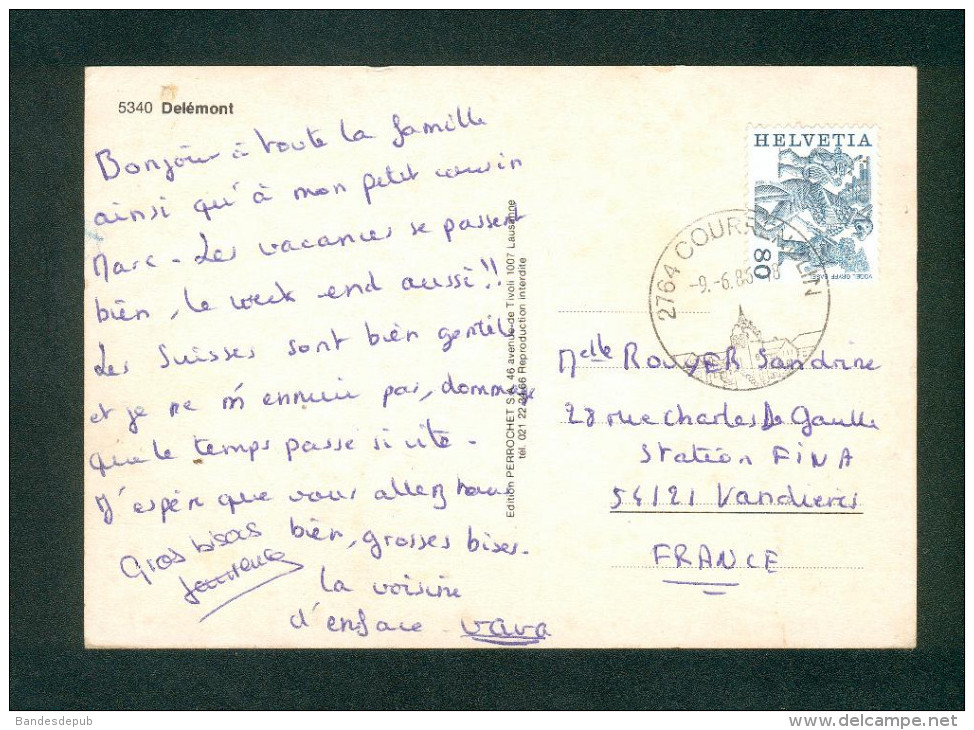 5340 Delémont
Bonjour à toute la famille
ainsi qu'à mon petit cousin
Marc - Les vacances se passent
bien, le week end aussi !!
Les Suisses sont bien gentils
et je ne m'ennuie pas, dommage
que le temps passe si vite -
J'espère que vous allez tous
bien, grosses bises.
Gros bisous
Laurence
la voisine
d'enface - vava
Edition PERROCHET S.A. 46 avenue de Tivoli 1007 Lausanne
tél. 021 22 Reproduction interdite
HELVETIA
80
VOGEL GRYFF BASEL
2764 COURRENDLIN
-9.-6.86-18
Melle ROUYER Sandrine
28 rue Charles De Gaulle
Station FINA
54121 Vandières
FRANCE
Bandesdepub
delcampe.net